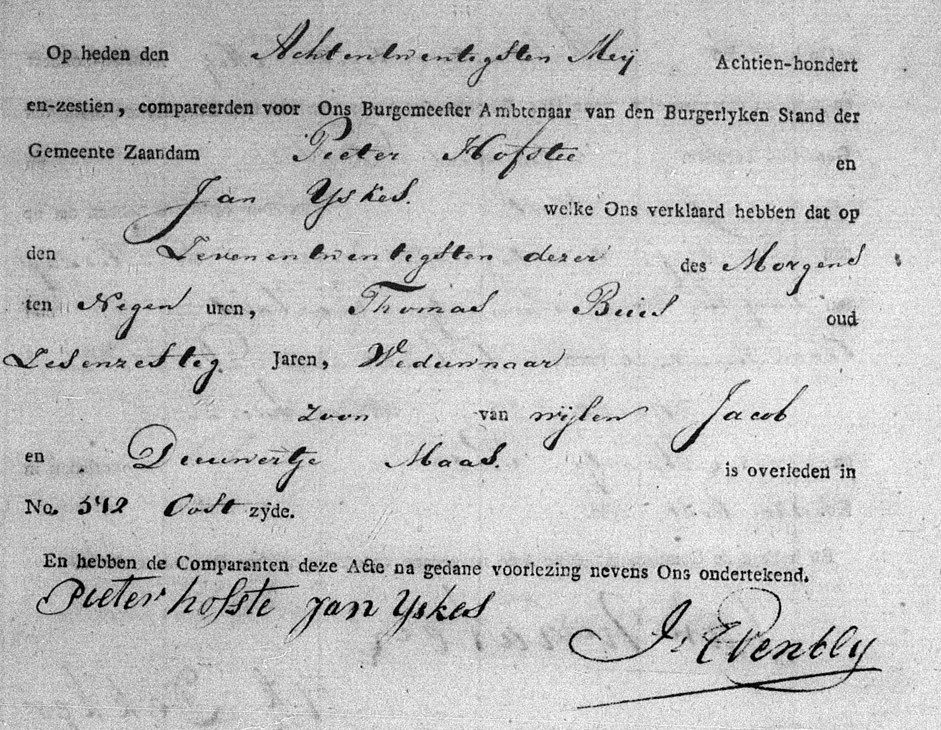 Op heden den Achtentwentigsten Meij Achtien-hondert
en-zestien, compareerden voor Ons Burgemeester Ambtenaar van den Burgerlyken Stand der
Gemeente Zaandam Pieter Hofstee en
Jan Yskes. welke Ons verklaard hebben dat op
den Sevenentwentigsten dezer des Morgens
ten Negen uren, Thomas oud
Sesenzesteg Jaren, Weduwnaar
zoon van wijlen Jacob
en Deuwertje Maas. is overleden in
No. 542 Oost zyde.
En hebben de Comparanten deze Acte na gedane voorlezing nevens Ons ondertekend.
Pieter hofste Jan Yskes